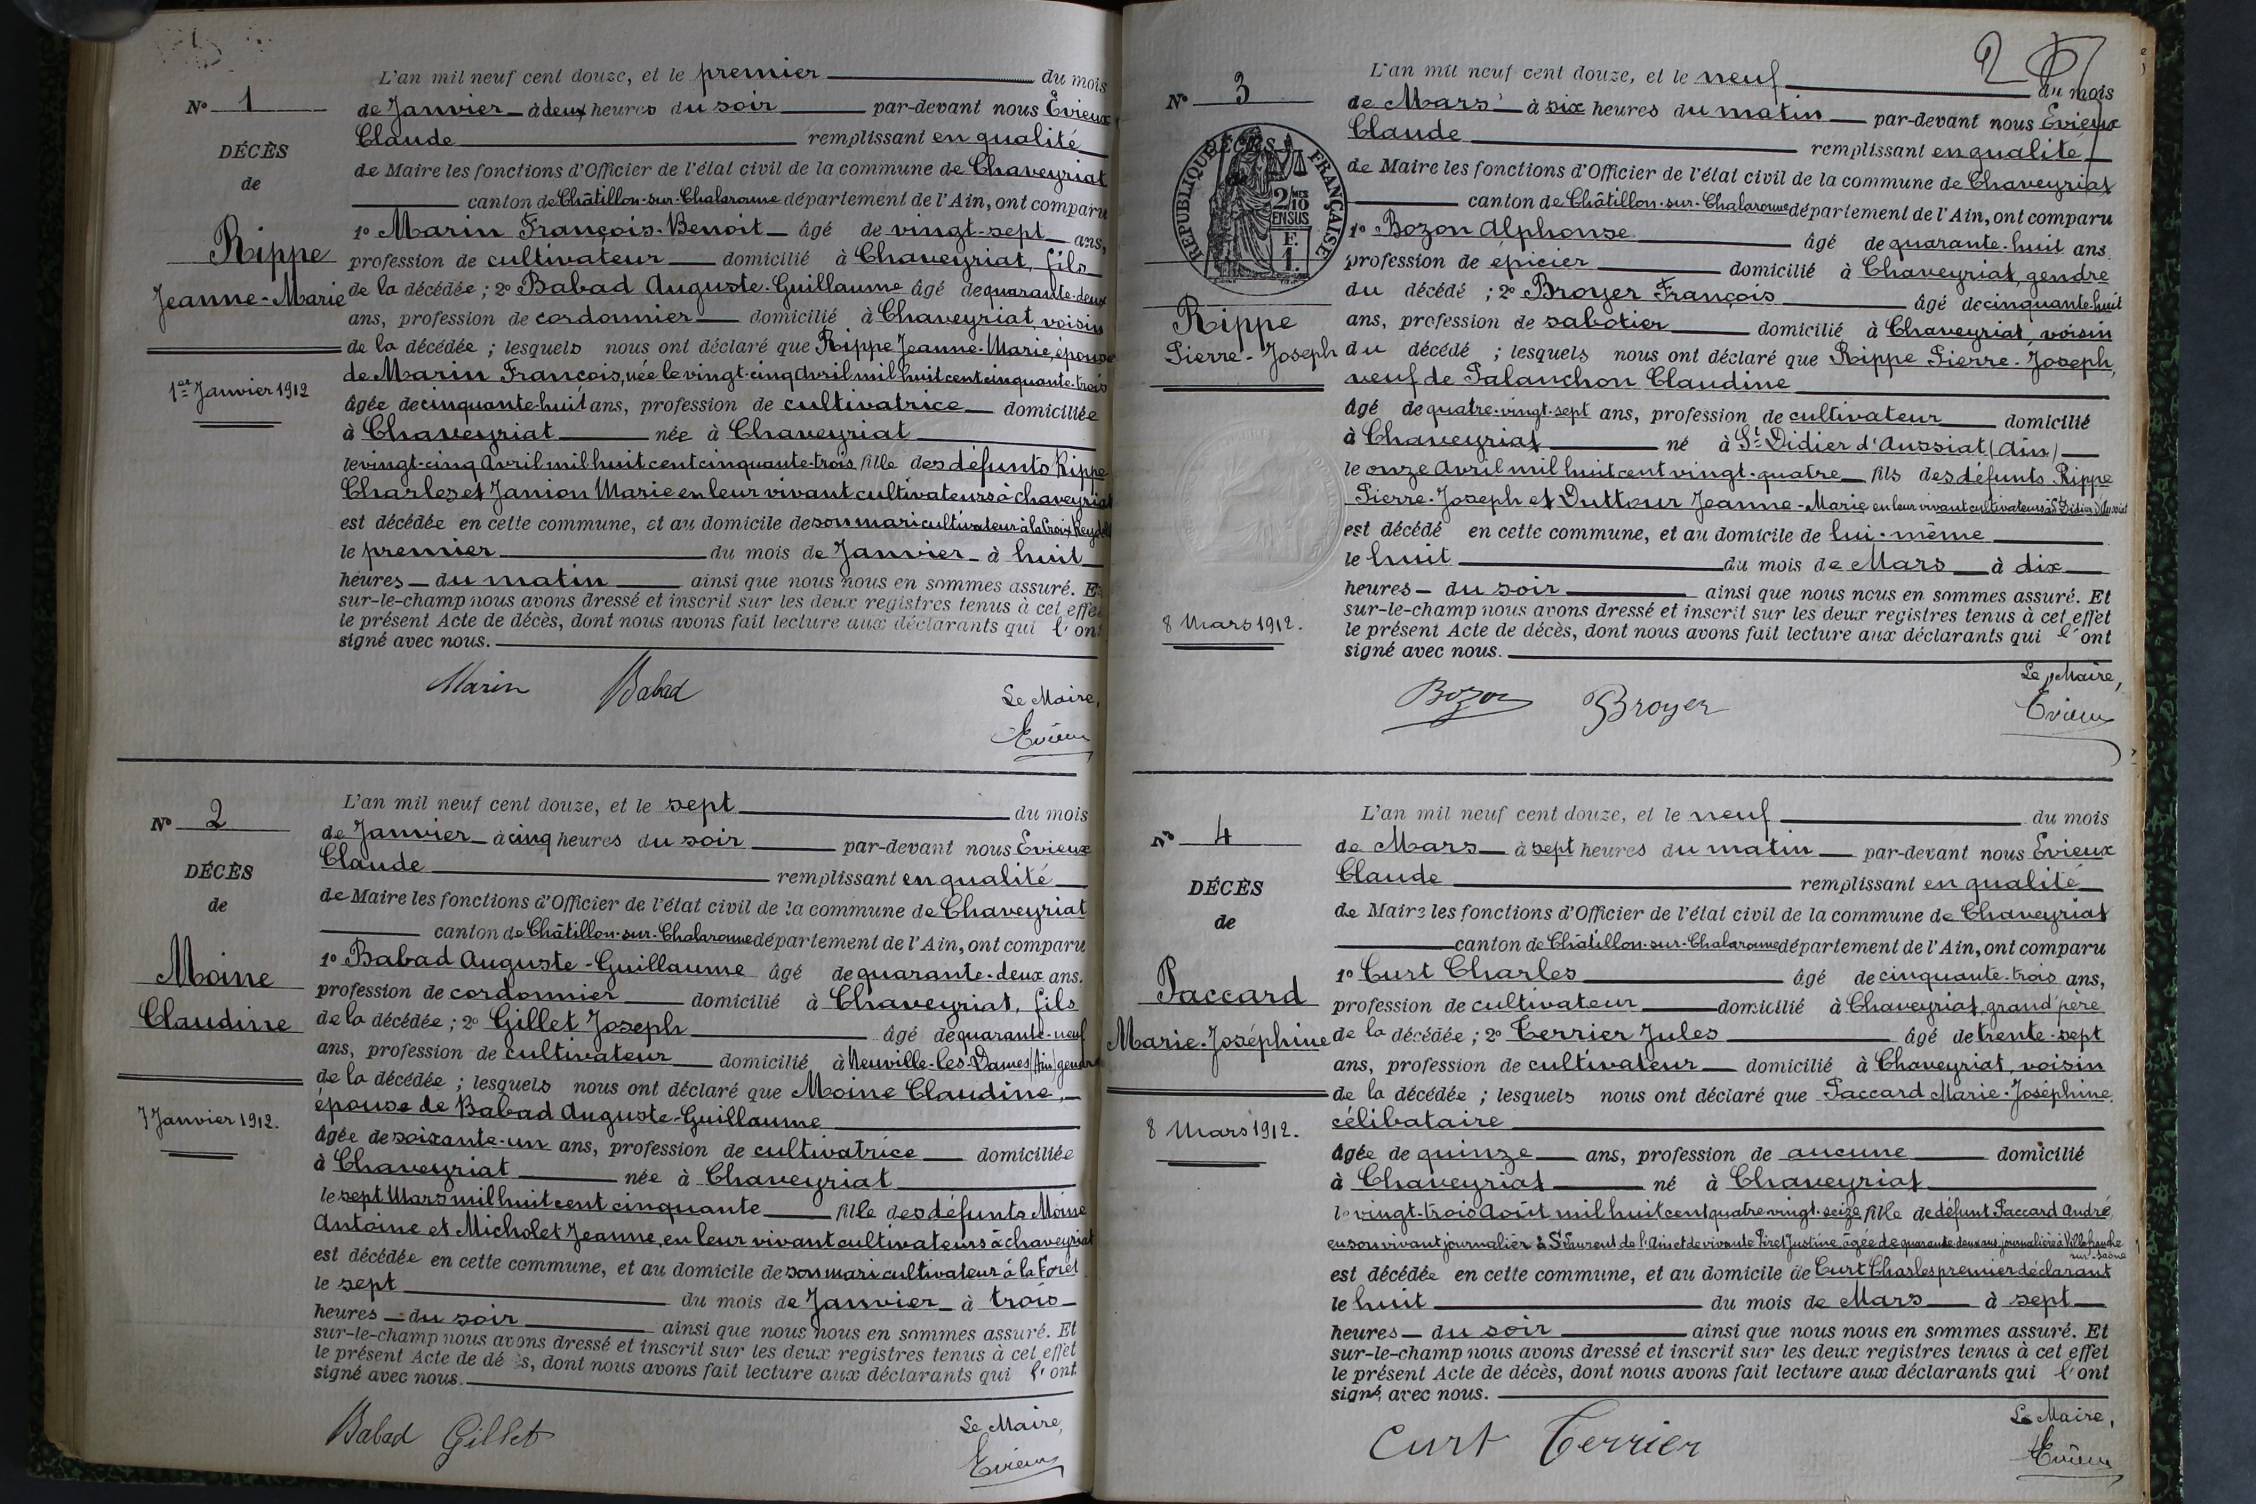 L'an mil neuf cent douze, et le premier du mois
N° 1
de Janvier à deux heures du soir par-devant nous Evieux
Claude remplissant en qualité
DÉCÈS
de Maire les fonctions d'Officier de l'état civil de la commune de Chaveyriat
de
canton de Châtillon-sur-Chalaronne département de l'Ain, ont comparu
1° Marin François-Benoit âgé de vingt-sept ans,
Rippe
profession de cultivateur domicilié à Chaveyriat, fils
Jeanne-Marie
de la décédée ; 2° Babad Auguste-Guillaume âgé de quarante-deux
ans, profession de cordonnier domicilié à Chaveyriat, voisin
de la décédée ; lesquels nous ont déclaré que Rippe Jeanne-Marie, épouse
de Marin François, née le vingt-cinq Avril mil huit cent cinquante-trois
1er Janvier 1912
âgée de cinquante-huit ans, profession de cultivatrice domiciliée
à Chaveyriat née à Chaveyriat
le vingt-cinq Avril mil huit cent cinquante-trois fille des défunts Rippe
Charles et Janion Marie en leur vivant cultivateurs à chaveyriat
est décédée en cette commune, et au domicile de son mari cultivateur à la Croix
le premier du mois de Janvier à huit
heures du matin ainsi que nous nous en sommes assuré. Et
sur-le-champ nous avons dressé et inscrit sur les deux registres tenus à cet effet
le présent Acte de décès, dont nous avons fait lecture aux déclarants qui l'ont
signé avec nous.
Marin Babad
Le Maire,
Evieux
L'an mil neuf cent douze, et le sept du mois
N° 2
de Janvier à cinq heures du soir par-devant nous Evieux
Claude remplissant en qualité
DÉCÈS
de Maire les fonctions d'Officier de l'état civil de la commune de Chaveyriat
de
canton de Châtillon-sur-Chalaronne département de l'Ain, ont comparu
1° Babad Auguste-Guillaume âgé de quarante-deux ans.
Moine
profession de cordonnier domicilié à Chaveyriat, fils
Claudine
de la décédée ; 2° Gillet Joseph âgé de quarante-neuf
ans, profession de cultivateur domicilié à Neuville-les-Dames (Ain) gendre
de la décédée ; lesquels nous ont déclaré que Moine Claudine,
épouse de Babad Auguste-Guillaume
7 Janvier 1912.
âgée de soixante-un ans, profession de cultivatrice domiciliée
à Chaveyriat née à Chaveyriat
le sept Mars mil huit cent cinquante fille des défunts Moine
Antoine et Micholet Jeanne, en leur vivant cultivateurs à chaveyriat
est décédée en cette commune, et au domicile de son mari cultivateur à la Forêt
le sept du mois de Janvier à trois
heures du soir ainsi que nous nous en sommes assuré. Et
sur-le-champ nous avons dressé et inscrit sur les deux registres tenus à cet effet
le présent Acte de dé s, dont nous avons fait lecture aux déclarants qui l'ont
signé avec nous.
Babad Gillet
Le Maire,
Evieux
2
L'an mil neuf cent douze, et le neuf du mois
N° 3
de Mars à six heures du matin par-devant nous Evieux
Claude remplissant en qualité
DÉCÈS
RÉPUBLIQUE FRANÇAISE
2/10 MES
EN SUS
F.
1.
de Maire les fonctions d'Officier de l'état civil de la commune de Chaveyriat
canton de Châtillon-sur-Chalaronne département de l'Ain, ont comparu
1° Bozon Alphonse âgé de quarante-huit ans
profession de épicier domicilié à Chaveyriat, gendre
du décédé ; 2° Broyer François âgé de cinquante-huit
Rippe
ans, profession de sabotier domicilié à Chaveyriat, voisin
Pierre-Joseph
du décédé ; lesquels nous ont déclaré que Rippe Pierre-Joseph,
veuf de Palanchon Claudine
âgé de quatre-vingt-sept ans, profession de cultivateur domicilié
à Chaveyriat né à St Didier d'Aussiat (Ain)
le onze Avril mil huit cent vingt-quatre fils des défunts Rippe
Pierre-Joseph et Duttour Jeanne-Marie en leur vivant cultivateurs à St Didier d'Aussiat
est décédé en cette commune, et au domicile de lui-même
le huit du mois de Mars à dix
heures du soir ainsi que nous nous en sommes assuré. Et
8 Mars 1912.
sur-le-champ nous avons dressé et inscrit sur les deux registres tenus à cet effet
le présent Acte de décès, dont nous avons fait lecture aux déclarants qui l'ont
signé avec nous.
Bozon Broyer
Le Maire,
Evieux
L'an mil neuf cent douze, et le neuf du mois
N° 4
de Mars à sept heures du matin par-devant nous Evieux
Claude remplissant en qualité
DÉCÈS
de Maire les fonctions d'Officier de l'état civil de la commune de Chaveyriat
de
canton de Châtillon-sur-Chalaronne département de l'Ain, ont comparu
1° Curt Charles âgé de cinquante-trois ans,
Paccard
profession de cultivateur domicilié à Chaveyriat, grand'père
Marie-Joséphine
de la décédée ; 2° Terrier Jules âgé de trente-sept
ans, profession de cultivateur domicilié à Chaveyriat, voisin
de la décédée ; lesquels nous ont déclaré que Paccard Marie-Joséphine,
8 Mars 1912.
célibataire
âgée de quinze ans, profession de aucune domicilié
à Chaveyriat né à Chaveyriat
le vingt-trois Août mil huit cent quatre-vingt-seize fille de défunt Paccard André,
en son vivant journalier à St Laurent de l'Ain et de vivante Piret Justine, âgée de quarante-deux ans, journalière à Villefranche
sur-Saône
est décédée en cette commune, et au domicile de Curt Charles premier déclarant
le huit du mois de Mars à sept
heures du soir ainsi que nous nous en sommes assuré. Et
sur-le-champ nous avons dressé et inscrit sur les deux registres tenus à cet effet
le présent Acte de décès, dont nous avons fait lecture aux déclarants qui l'ont
signé avec nous.
Curt Terrier
Le Maire,
Evieux